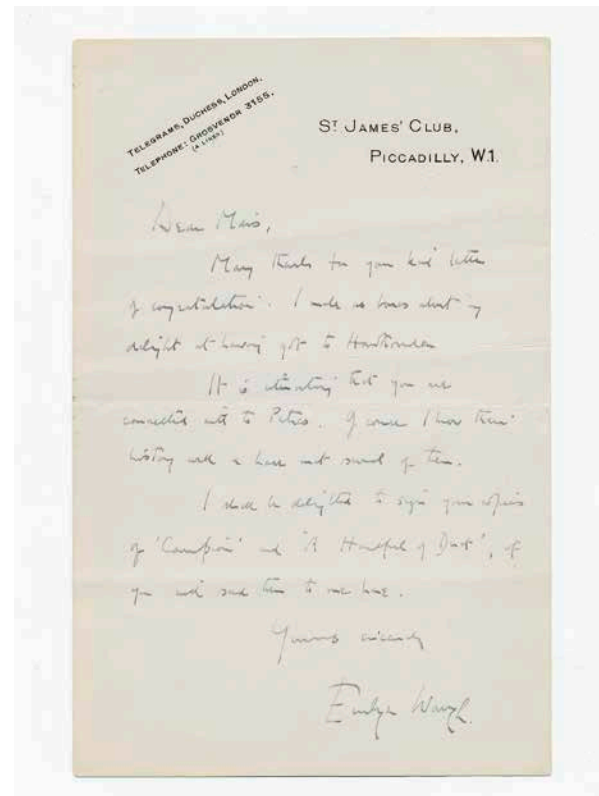 TELEGRAMS, DUCHESS, LONDON.
TELEPHONE: GROSVENOR 3155.
(4 LINES)
ST JAMES' CLUB,
PICCADILLY, W.1.
Dear
Many thanks for your kind letter
of congratulation. I made no bones about my
delight at having got the Hawthornden
It is interesting that you are
connected with the Petres. Of course I know their
history well & have met several of them.
I shall be delighted to sign your copies
of 'Campion' and 'A Handful of Dust', if
you will send them to me here.
Yours sincerely
Evelyn Waugh.